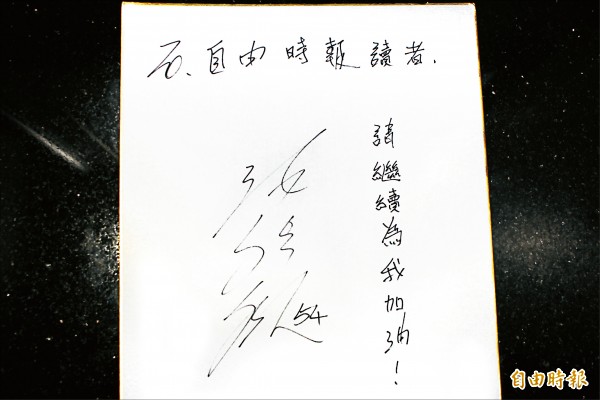 To. 自由時報讀者.
請繼續為我加油!
54
自由時報